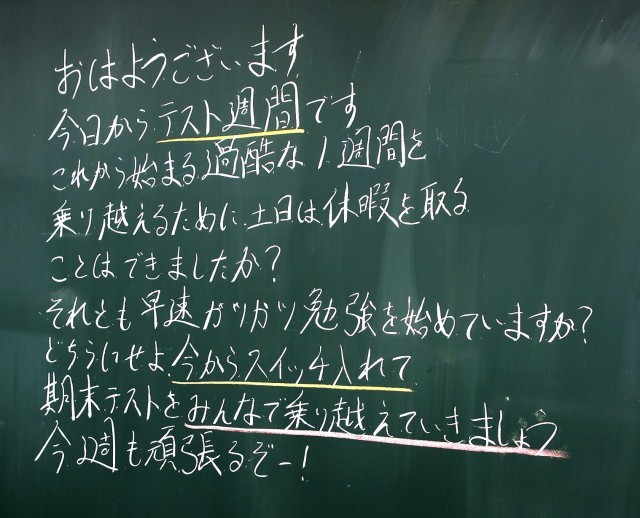 おはようございます
今日からテスト週間です
これから始まる過酷な1週間を
乗り越えるために土日は休暇を取る
ことはできましたか?
それとも早速ガリガリ勉強を始めていますか?
どちらにせよ今からスイッチ入れて
期末テストをみんなで乗り越えていきましょう
今週も頑張るぞー!